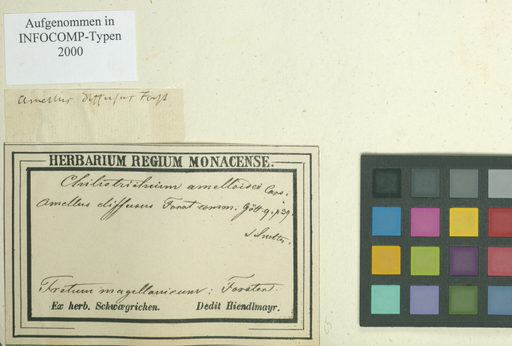 Aufgenommen in
INFOCOMP-Typen
2000
Amellus diffusus Forst
HERBARIUM REGIUM MONACENSE.
Chiliotrichium amelloides Cass.
Amellus diffusus Forst comm. Gött. 9. p. 39.
Fretum magellanicum: Forster!
Ex herb. Schwægrichen. Dedit Hiendlmayr.